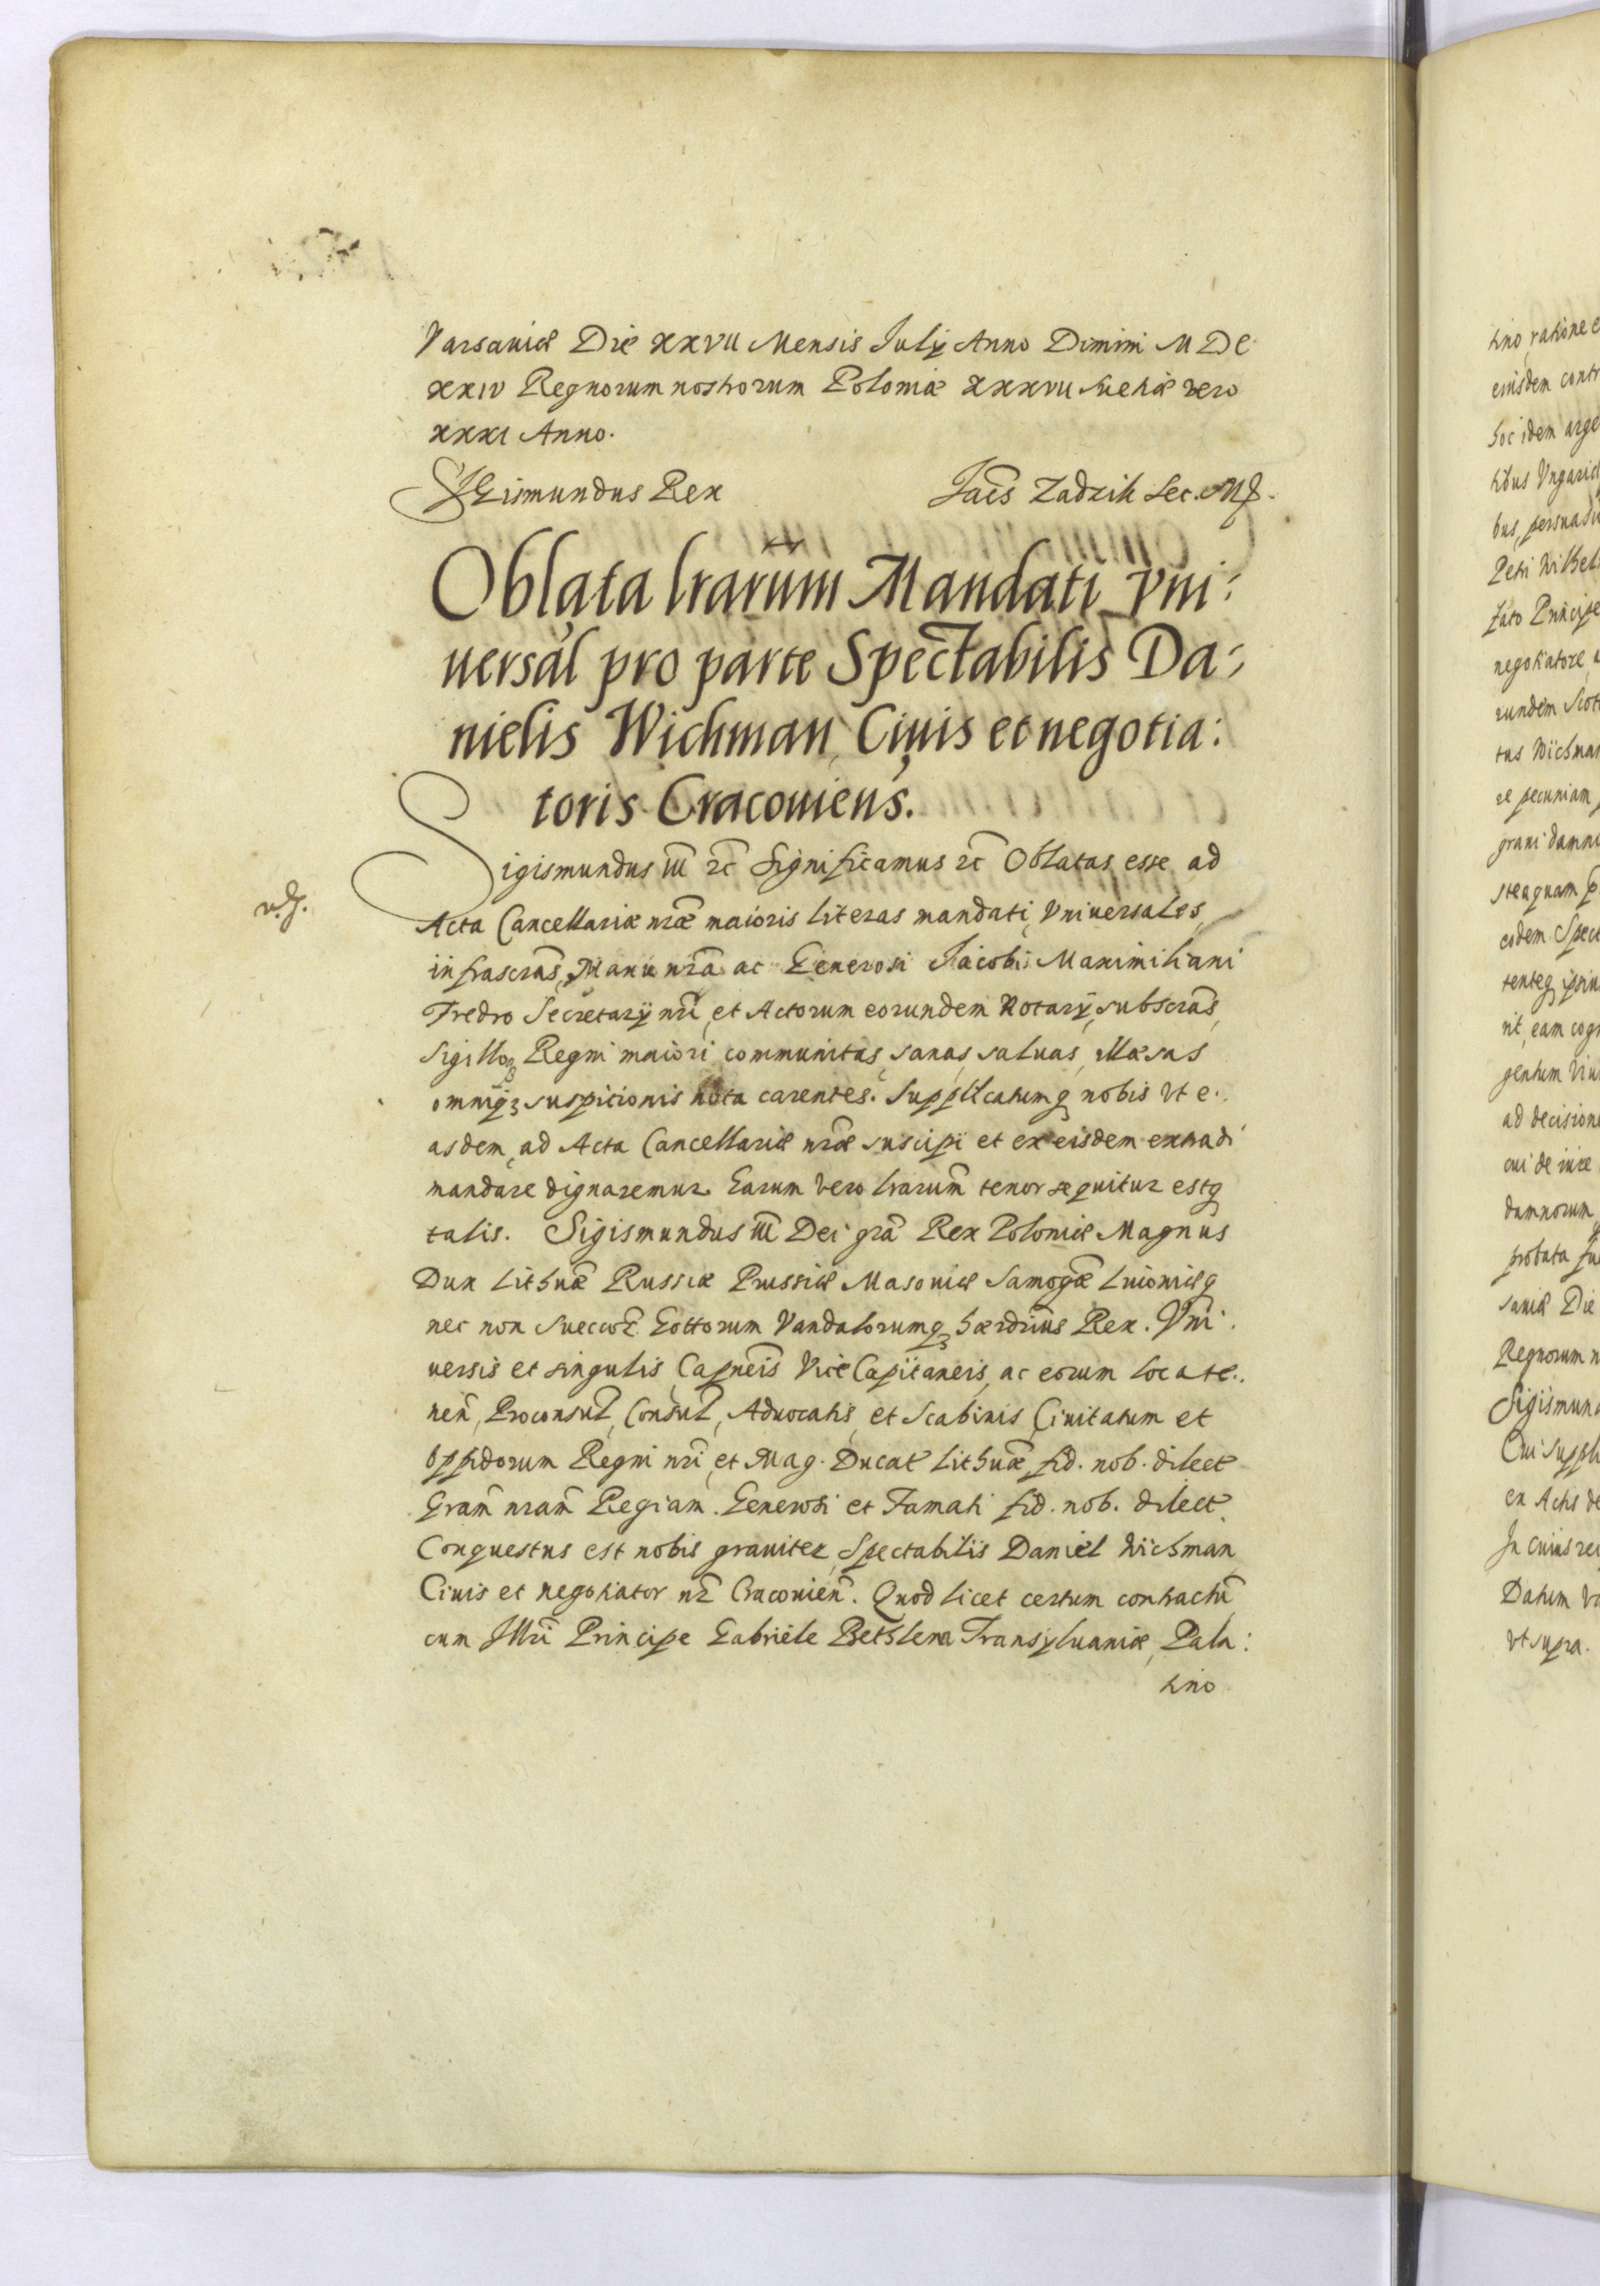 Varsaviæ Die xxvii Mensis Iulÿ Anno Domini MDC
xxiv Regnorum nostrorum Poloniæ xxxvii Sueciæ vero
xxxi Anno.
Sigismundus Rex Jacs Zadzik Sec. Mp.
Oblata lrarum Mandati Vni:
uersal pro parte Spectabilis Da:
nielis Wichman Ciuis et negotia:
toris Cracouiens.
Sigismundus III etc Significamus etc Oblatas esse ad
Acta Cancellariæ nræ maioris literas mandati Vniuersales
infrascras, Manu nra ac Generosi Jacobi Maximiliani
Fredro Secretarÿ nri et Actorum eorundem Notarÿ subscras
Sigilloq Regni maiori communitas, sanas, saluas, illæsas
omniq suspitionis nota carentes. Supplicatumq nobis vt e.
asdem ad Acta Cancellariæ nræ suscipi et ex eisdem extradi
mandare dignaremur. Earum vero lrarum tenor sequitur estq
talis. Sigismundus III Dei gra Rex Poloniæ Magnus
Dux Lithuæ Russiæ Prussiæ Masouiæ Samogæ Liuoniæq
nec non Suecor Gottorum Vandalorumq hærdrius Rex. Vni.
uersis et singulis Capneis ViceCapitaneis, ac eorum locate.
nen, Proconsul, Consul, Aduocatis et Scabinis Ciuitatum et
Oppidorum Regni nri et Mag. Ducat Lithuæ fid. nob. dilect
Gram nram Regiam. Generosi et Famati fid. nob. dilect.
Conquestus est nobis grauiter Spectabilis Daniel Wichman
Ciuis et negotiator nr Cracouien. Quod licet certum contractu
cum Illri Principe Gabriele Bethlem Transyluaniæ Pala:
tino
tino ratione
eiusdem contr
hoc idem arge
tibus Vngaric
bus, persuasu
Petri Wilhel
fato Principe
negotiatore
rundem Scot
tus Wichman
re pecuniam
graui damn
steaquam p
eodem Spect
tenteq ipsiu
rit, eam cog
gentum
ad decision
cui de iure
damnorum
probata fu
sauiæ Die
Regnorum n
Sigismun
Cui suppl
ex Actis de
In cuius rei
Datum Va
vt supra.